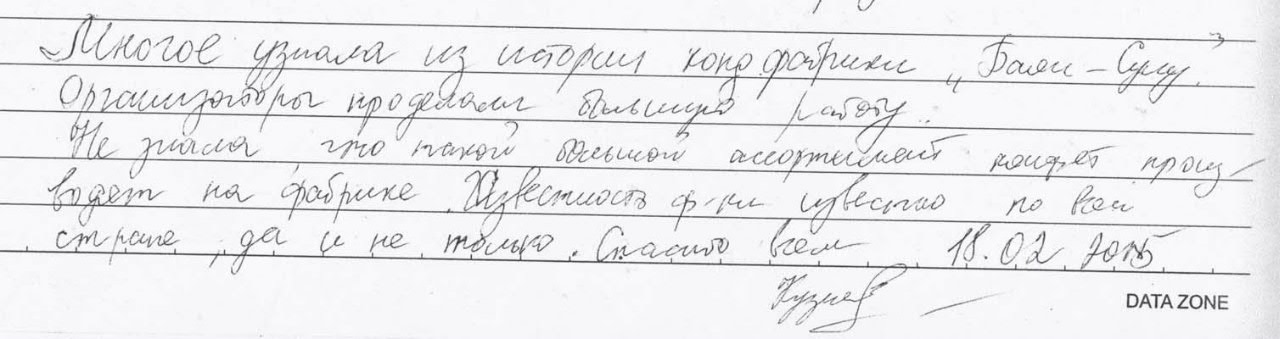 Многое узнала из истории конд.фабрики „Баян-Сулу".
Организаторы проделали большую работу.
Не знала, что такой большой ассортимент конфет произ-
водят на фабрике. Известность ф-ки известно по всей
стране, да и не только. Спасибо всем 18.02 2015
DATA ZONE